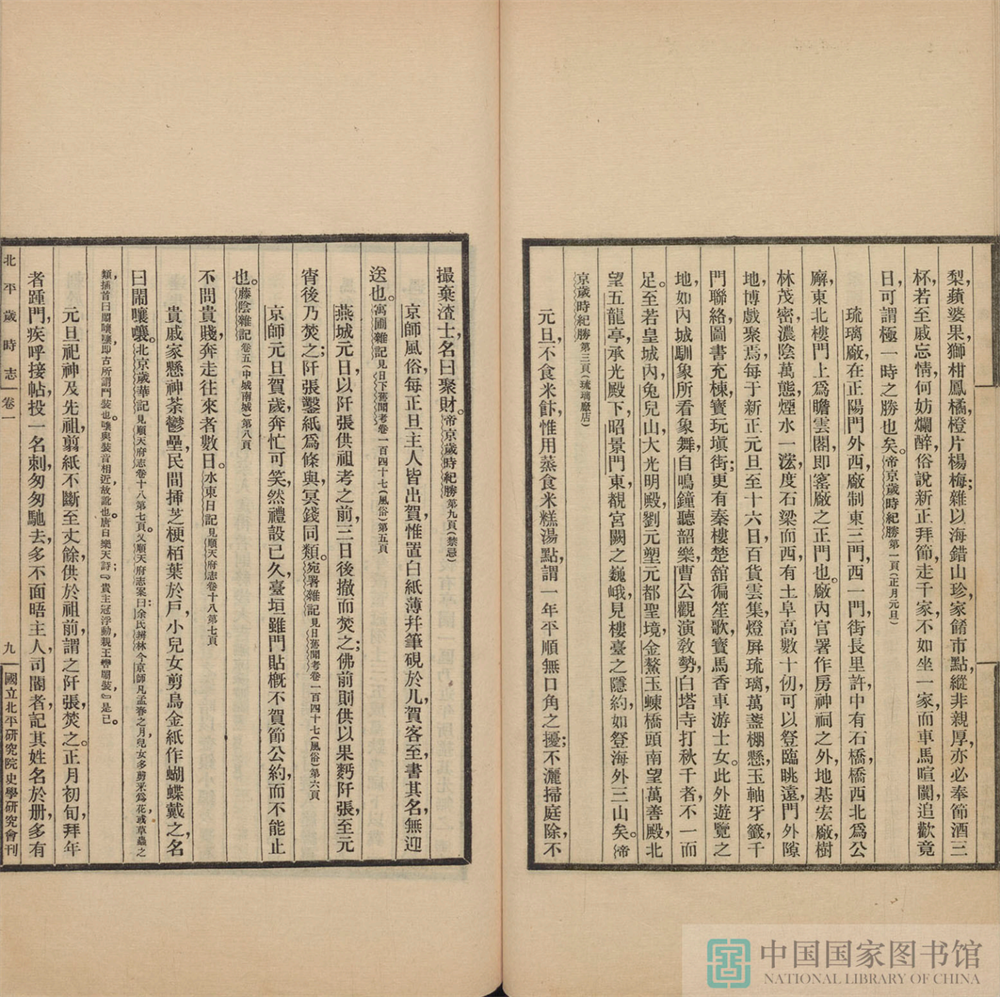 梨,蘋婆果,獅柑,鳳橘,橙片,楊梅;雜以海錯山珍,家餚市點,縱非親厚,亦必奉節酒三
杯,若至戚忘情,何妨爛醉,俗說新正拜節,走千家不如坐一家,而車馬喧闐,追歡竟
日,可謂極一時之勝也矣。帝京歲時紀勝第一頁(正月元旦)
琉璃廠在正陽門外西,廠制東三門,西一門,街長里許,中有石橋,橋西北爲公
廨,東北樓門上爲瞻雲閣,即窰廠之正門也。廠內官署作房神祠之外,地基宏廠,樹
林茂密,濃陰萬態,煙水一泓,度石梁而西,有土阜高數十仞,可以登臨眺遠,門外隙
地,博戲聚焉,每于新正元旦至十六日,百貨雲集,燈屏琉璃,萬盞棚懸,玉軸牙籤,千
門聯絡,圖書充棟,寶玩塡街;更有秦樓楚館徧笙歌,寶馬香車游士女。此外遊覽之
地,如內城馴象所看象舞,自鳴鐘聽韶樂,曹公觀演敎勢,白塔寺打秋千者,不一而
足。至若皇城內兔兒山,大光明殿,劉元塑元都聖境,金鰲玉蝀橋頭,南望萬善殿,北
望五龍亭,承光殿下,昭景門東,覩宮闕之巍峨,見樓臺之隱約,如登海外三山矣。帝
京歲時紀勝第三頁(琉璃廠店)
元旦不食米飰,惟用蒸食米糕湯點,謂一年平順,無口角之擾;不灑掃庭除,不
撮棄渣土,名曰聚財。帝京歲時紀勝第九頁(禁忌)
京師風俗,每正旦主人皆出賀,惟置白紙薄幷筆硯於几,賀客至,書其名,無迎
送也。寓圃雜記見日下舊聞考卷一百四十七(風俗)第五頁
燕城元日,以阡張供祖考之前,三日後撤而焚之;佛前則供以果麪,阡張至元
宵後乃焚之;阡張鑿紙爲條,與冥錢同類。宛署雜記見日下舊聞考卷一百四十七(風俗)第六頁
京師元旦賀歲,奔忙可笑,然禮設已久,臺垣雖門貼槪不賀節公約,而不能止
也。藤陰雜記卷五(中城南城)第八頁
不問貴賤,奔走往來者數日。水東日記見順天府志卷十八第七頁
貴戚家懸神荼鬱壘,民間揷芝梗栢葉於戶,小兒女剪烏金紙作蝴蝶戴之,名
曰鬧嚷嚷。北京歲華記見順天府志卷十八第七頁。又順天府志案曰:余氏辨林,今京師凡孟春之月,兒女多剪采爲花或草蟲之
類插首曰鬧嚷嚷,卽古所謂鬧裝也。
元旦祀神及先祖,翦紙不斷至丈餘,供於祖前,謂之阡張,焚之。正月初旬拜年
者踵門,疾呼接帖,投一名刺,匆匆馳去,多不面晤主人,司閽者記其姓名於册,多有
北平歲時志 卷一 九 國立北平研究院史學研究會刊
中国国家图书馆
NATIONAL LIBRARY OF CHINA